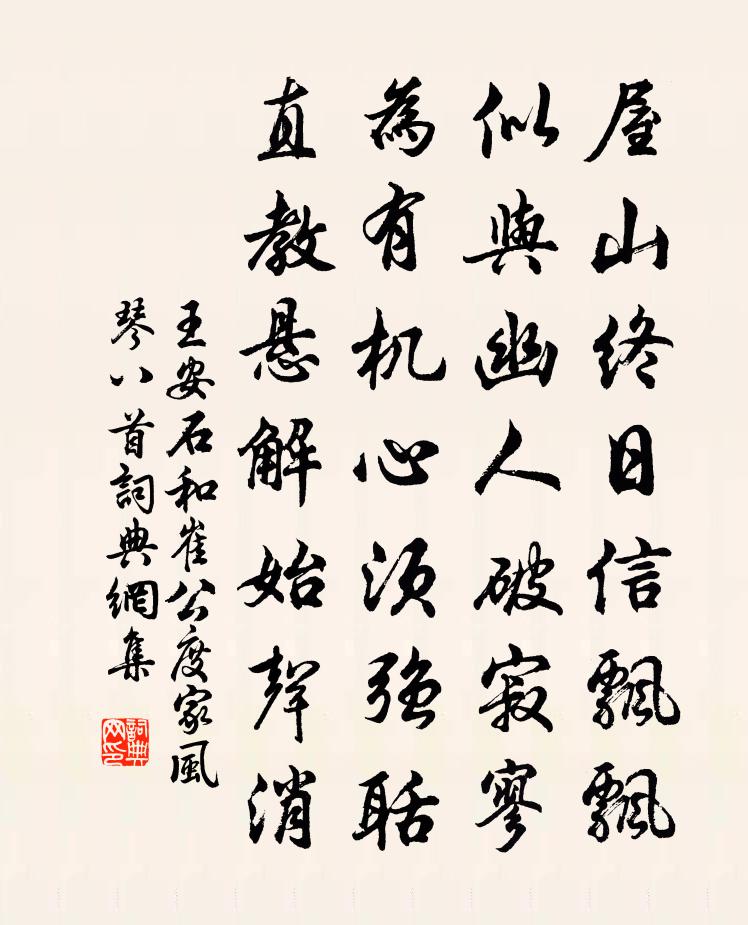 屋山終日信飄飄
似與幽人破寂寥
為有机心須強聒
直教悬解始聲消
王安石和崔公度家風
琴八首詞典網集
詞典
网印